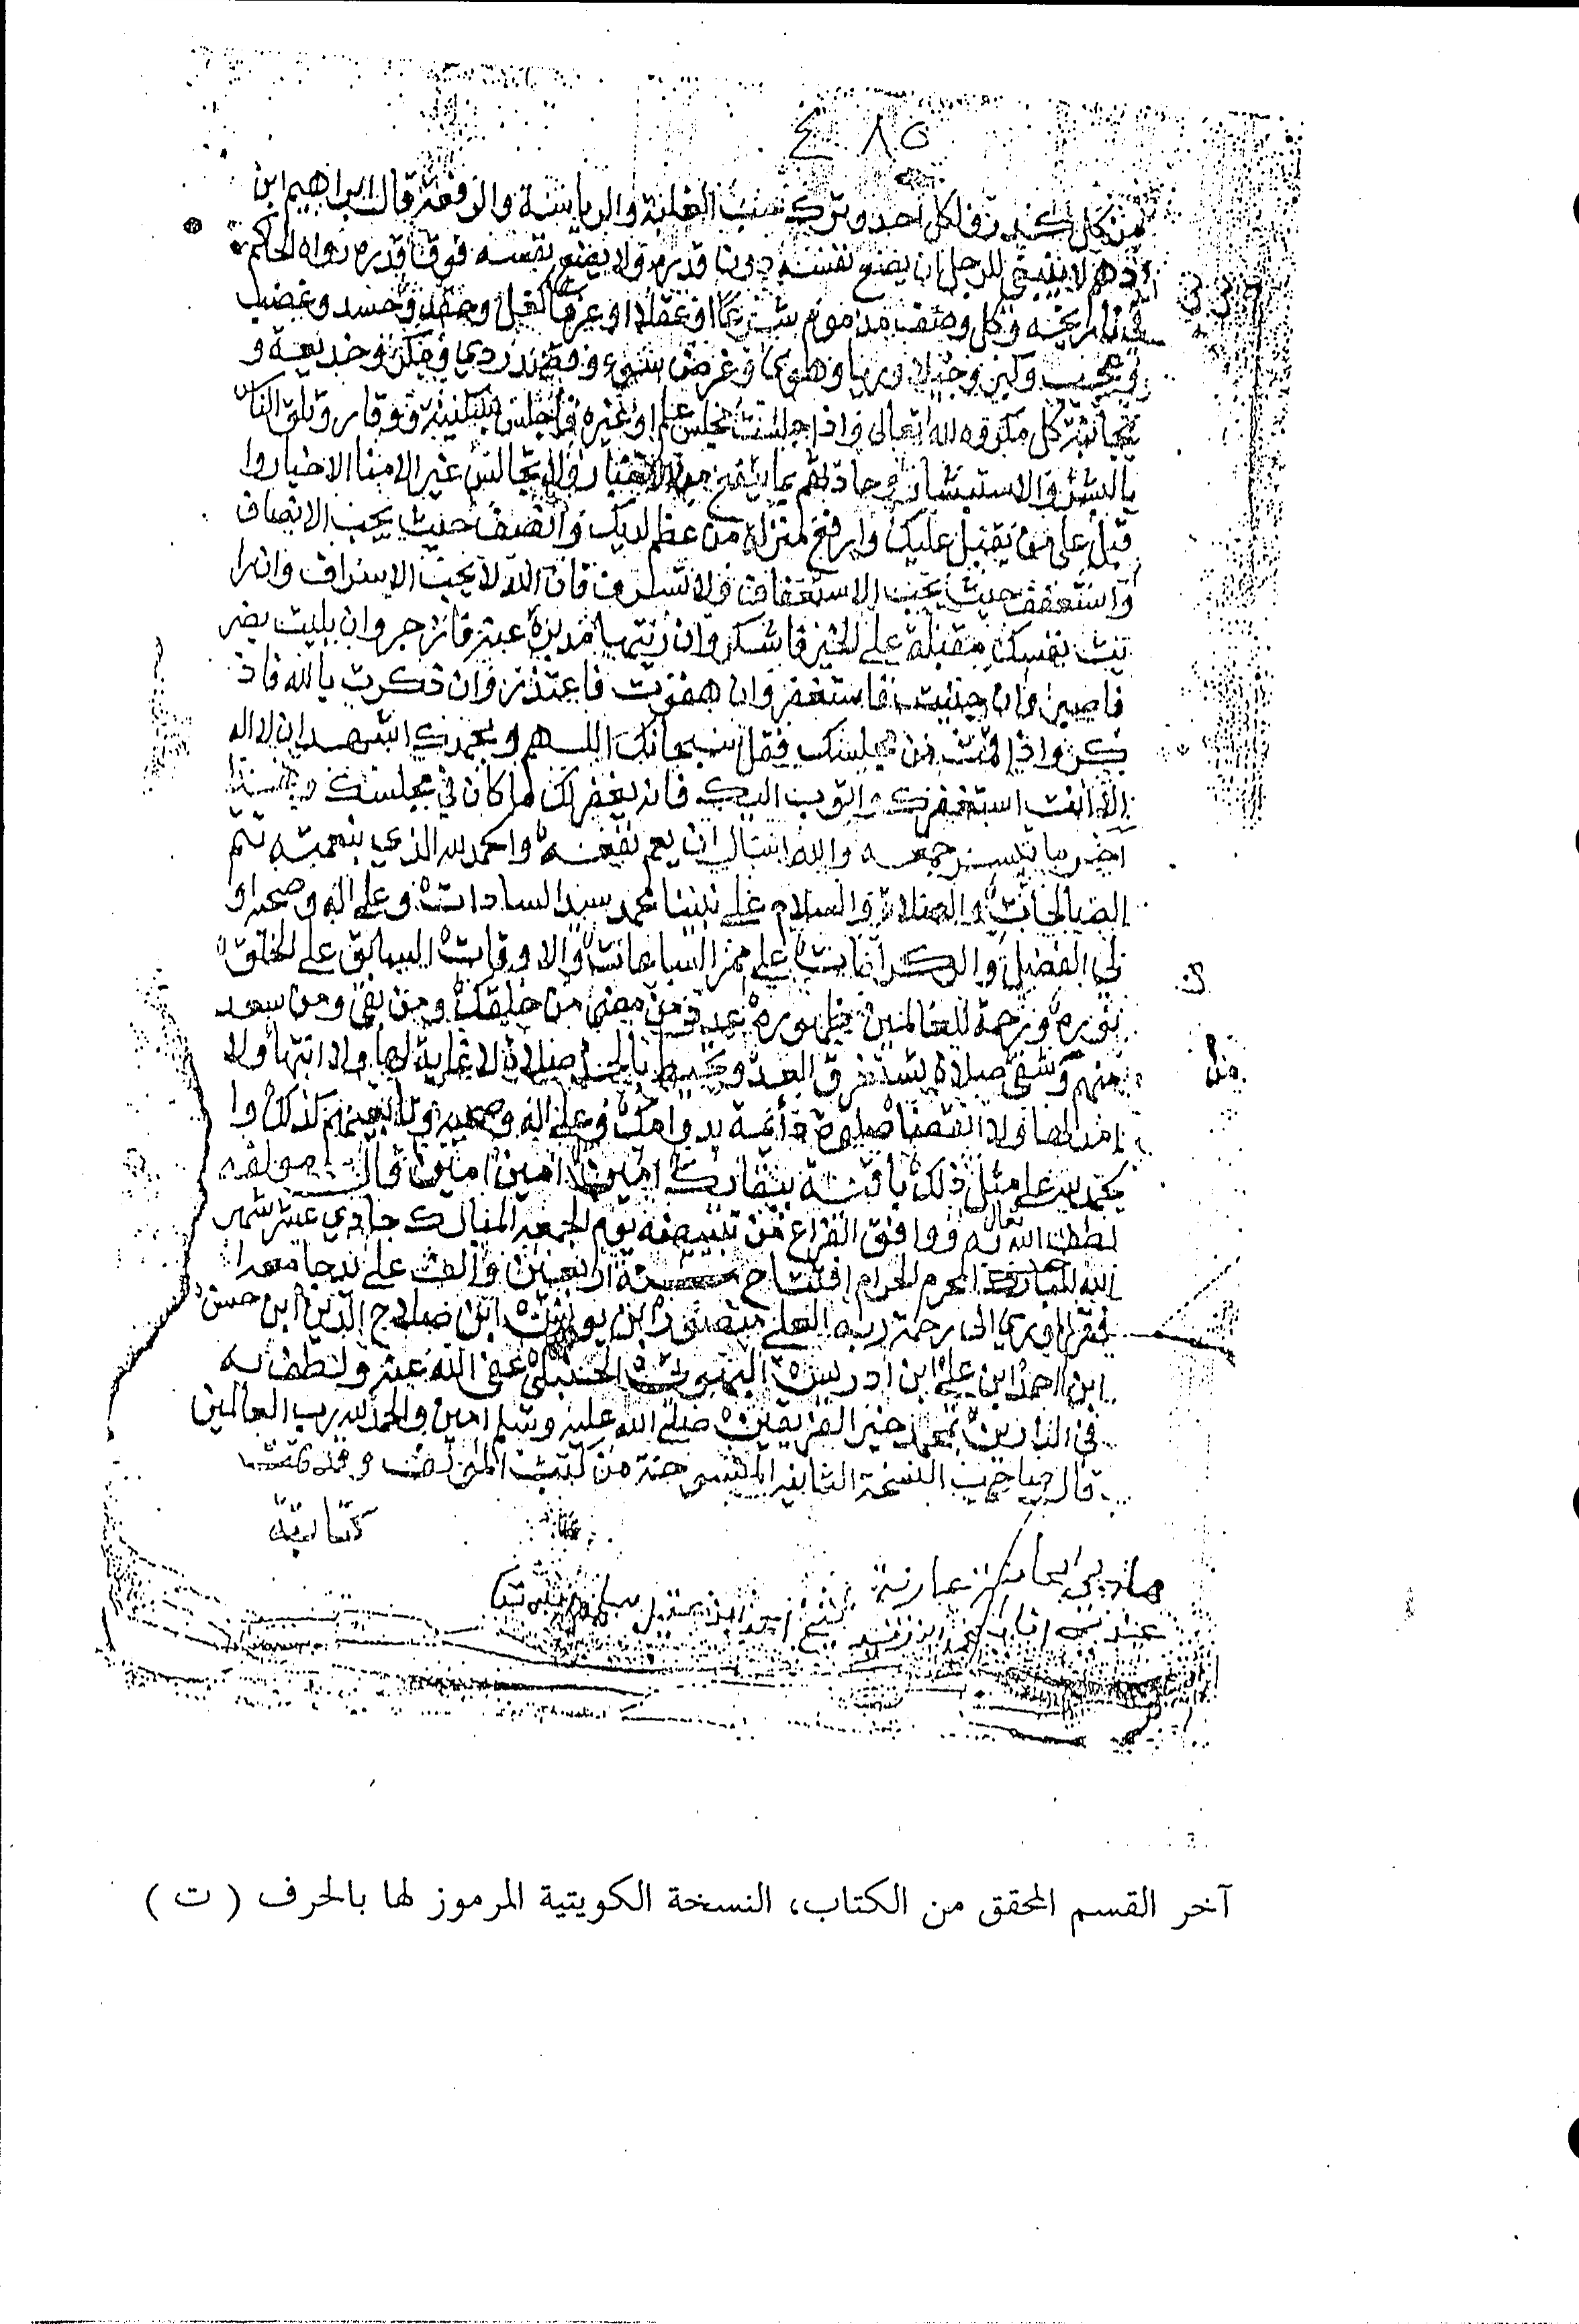 ٤٨٥
من كل أحد وترك حب الغلبة والرياسة والرفعة قال ابراهيم ابن
ادهم لا ينبغي للرجل ان يضع نفسه دون قدره ولا يضع نفسه فوق قدره رواه الحاكم
في تاريخه وكل وصف مذموم شرعا او عقلا او عرفا كغل وحقد وحسد وغضب
وعجب وكبر وخيلا وريا وهوى وغرض سوء وقصد ردي ومكر وخديعة و
مجانبة كل مكروه لله تعالى واذا جلست مجلس علم او غيره فاجلس بسكينة ووقار وتلق الناس
بالبشر والاستبشار وحادثهم بما ينفع من الاخبار ولا تجالس غير الامنا الاخيار وا
قبل على من يقبل عليك وارفع منزلة من عظم لديك وانصف حيث يجب الانصاف
واستعفف حيث يجب الاستعفاف ولا تسرف فان الله لا يحب الاسراف وان را
يت نفسك مقبلة على الخير فاشكر وان رايتها مدبرة عنه فازجر وان بليت بضر
فاصبر وان جنيت فاستغفر وان هفوت فاعتذر وان ذكرت بالله فاذ
كر واذا قمت من مجلسك فقل سبحانك اللهم وبحمدك اشهد ان لا اله
الا انت استغفرك واتوب اليك فانه يغفر لك ما كان في مجلسك وهذا
اخر ما تيسر جمعه والله اسال ان يعم نفعه والحمد لله الذي بنعمته تتم
الصالحات والصلاة والسلام على نبينا محمد سيد السادات وعلى اله وصحبه او
لي الفضل والكرامات على ممر الساعات والاوقات السابق على الخلق
نوره ورحمة للعالمين ظهوره عدد من مضى من خلقك ومن بقى ومن سعد
منهم وشقى صلاة تستغرق العد وتحيط بالحد صلاة لا غاية لها ولا انتها ولا
امد لها ولا انقضا صلوة دائمة بدوامك وعلى اله وصحبه وتابعيهم كذلك وا
لحمد لله على مثل ذلك باقية ببقائك امين امين امين قال مولفه
لطف الله تعالى به ووافق الفراغ من تبييضه يوم الجمعة المبارك حادي عشر شهر
الله المبارك المحرم الحرام افتتاح سنة اربعين والف على يد جامعه ا
فقر الورى الى رحمة ربه العلي منصور ابن يونس ابن صلاح الدين ابن حسن
ابن احمد ابن علي ابن ادريس البهوتي الحنبلي عفى الله عنه ولطف به
في الدارين بمحمد خير الفريقين صلى الله عليه وسلم امين والحمد لله رب العالمين
قال صاحب النسخة الثانية المنسوخة من كتب المؤلف وقد تمت
كتابته
آخر القسم المحقق من الكتاب، النسخة الكويتية المرموز لها بالحرف ( ت )